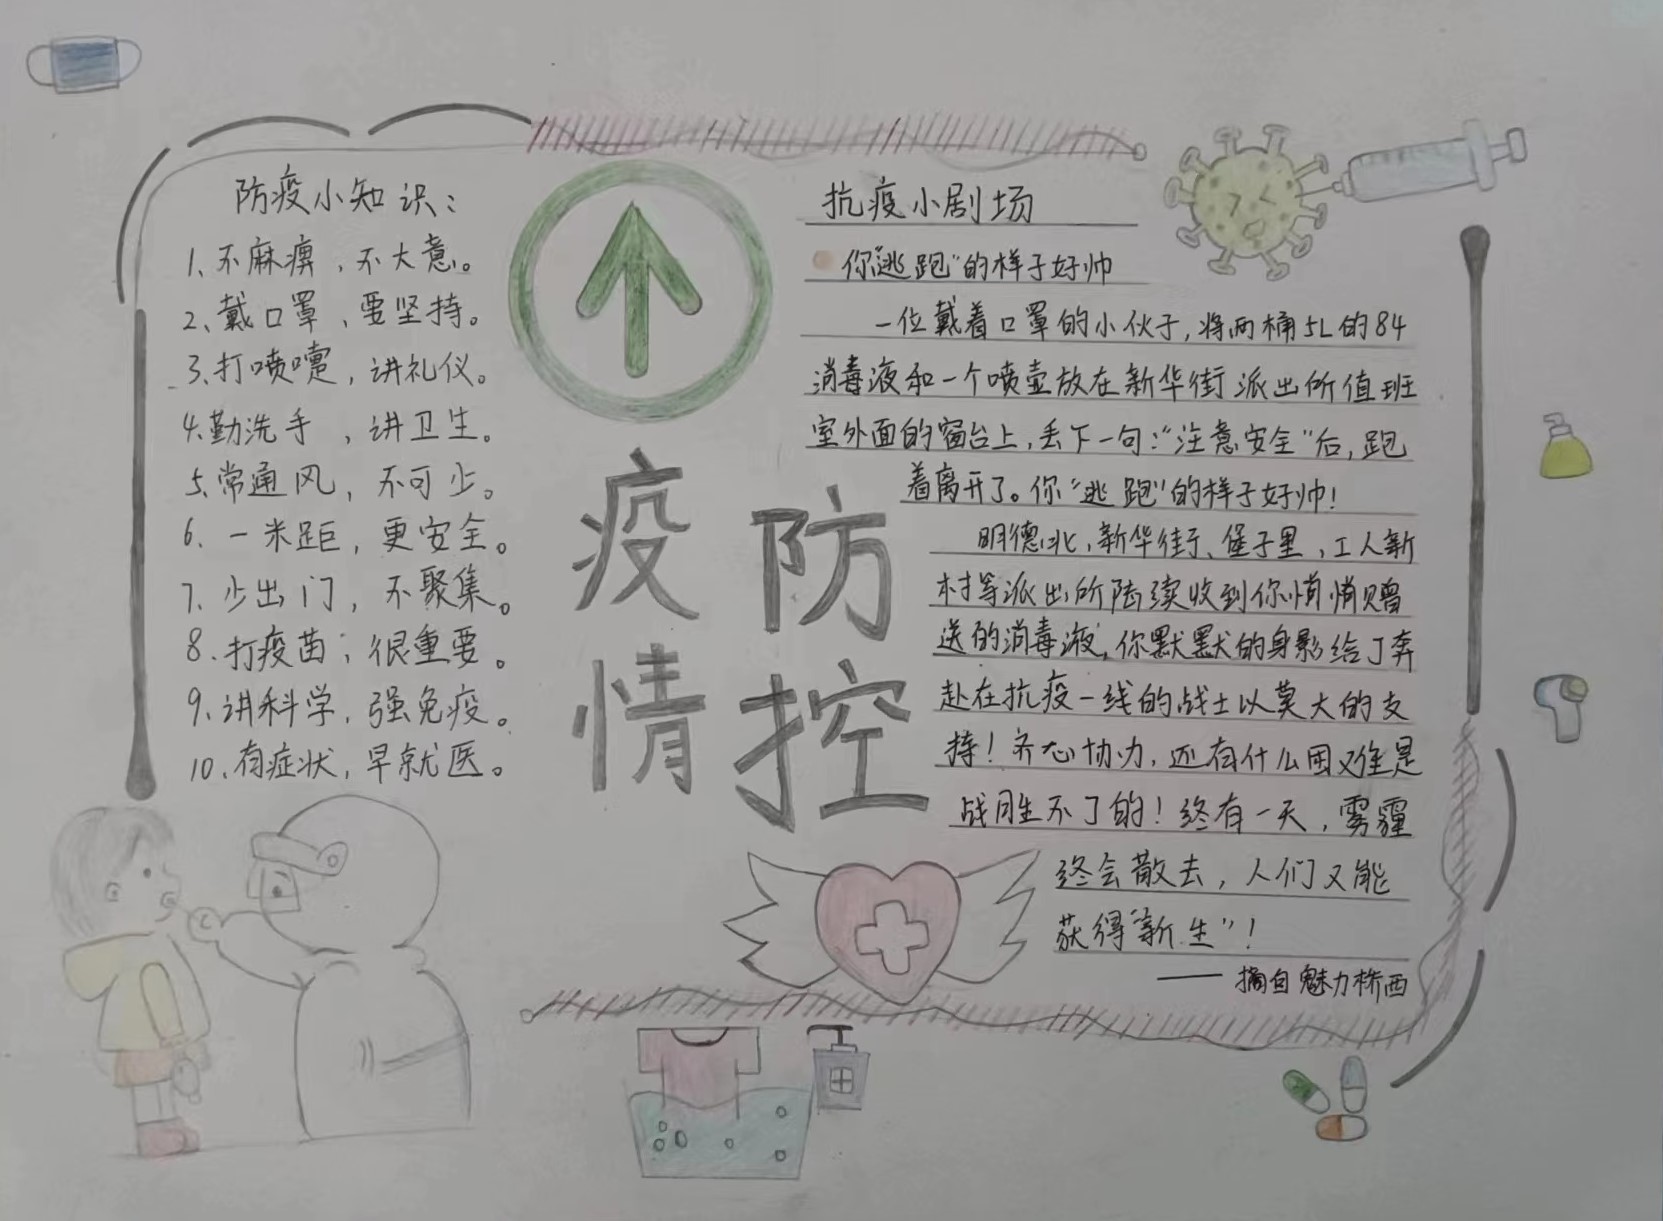 防疫小知识：
1、不麻痹，不大意。
2、戴口罩，要坚持。
3、打喷嚏，讲礼仪。
4、勤洗手，讲卫生。
5、常通风，不可少。
6、一米距，更安全。
7、少出门，不聚集。
8、打疫苗；很重要。
9、讲科学，强免疫。
10、有症状，早就医。
疫情
防控
抗疫小剧场
你“逃跑”的样子好帅
一位戴着口罩的小伙子，将两桶5L的84
消毒液和一个喷壶放在新华街派出所值班
室外面的窗台上，丢下一句：“注意安全”后，跑
着离开了。你“逃跑”的样子好帅！
明德北，新华街、堡子里，工人新
村等派出所陆续收到你悄悄赠
送的消毒液，你默默的身影给了奔
赴在抗疫一线的战士以莫大的支
持！齐心协力，还有什么困难是
战胜不了的！终有一天，雾霾
终会散去，人们又能
获得“新生”！
——摘自魅力桥西